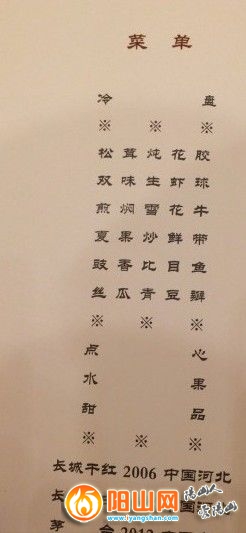 菜 单
冷 盘
※ ※ ※
松 茸 炖 花 胶
双 味 生 虾 球
煎 焖 雪 花 牛
夏 果 炒 鲜 带
豉 香 比 目 鱼
丝 瓜 青 豆 瓣
※ ※ ※
点 心
水 果
甜 品
※ ※ ※
长城干红 2006 中国河北
长 国河
茅 2012
阳山网
www.iyangshan.com
阳山人
爱阳山